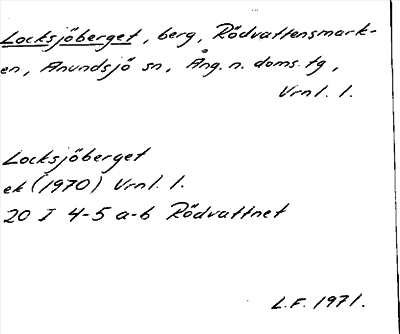 Locksjöberget, berg, Rödvattensmark-
en, Anundsjö sn, Ång. n. doms. tg,
Vrnl. l.
Locksjöberget
ek (1970) Vrnl. l.
20 I 4-5 a-b Rödvattnet
L.F. 1971.